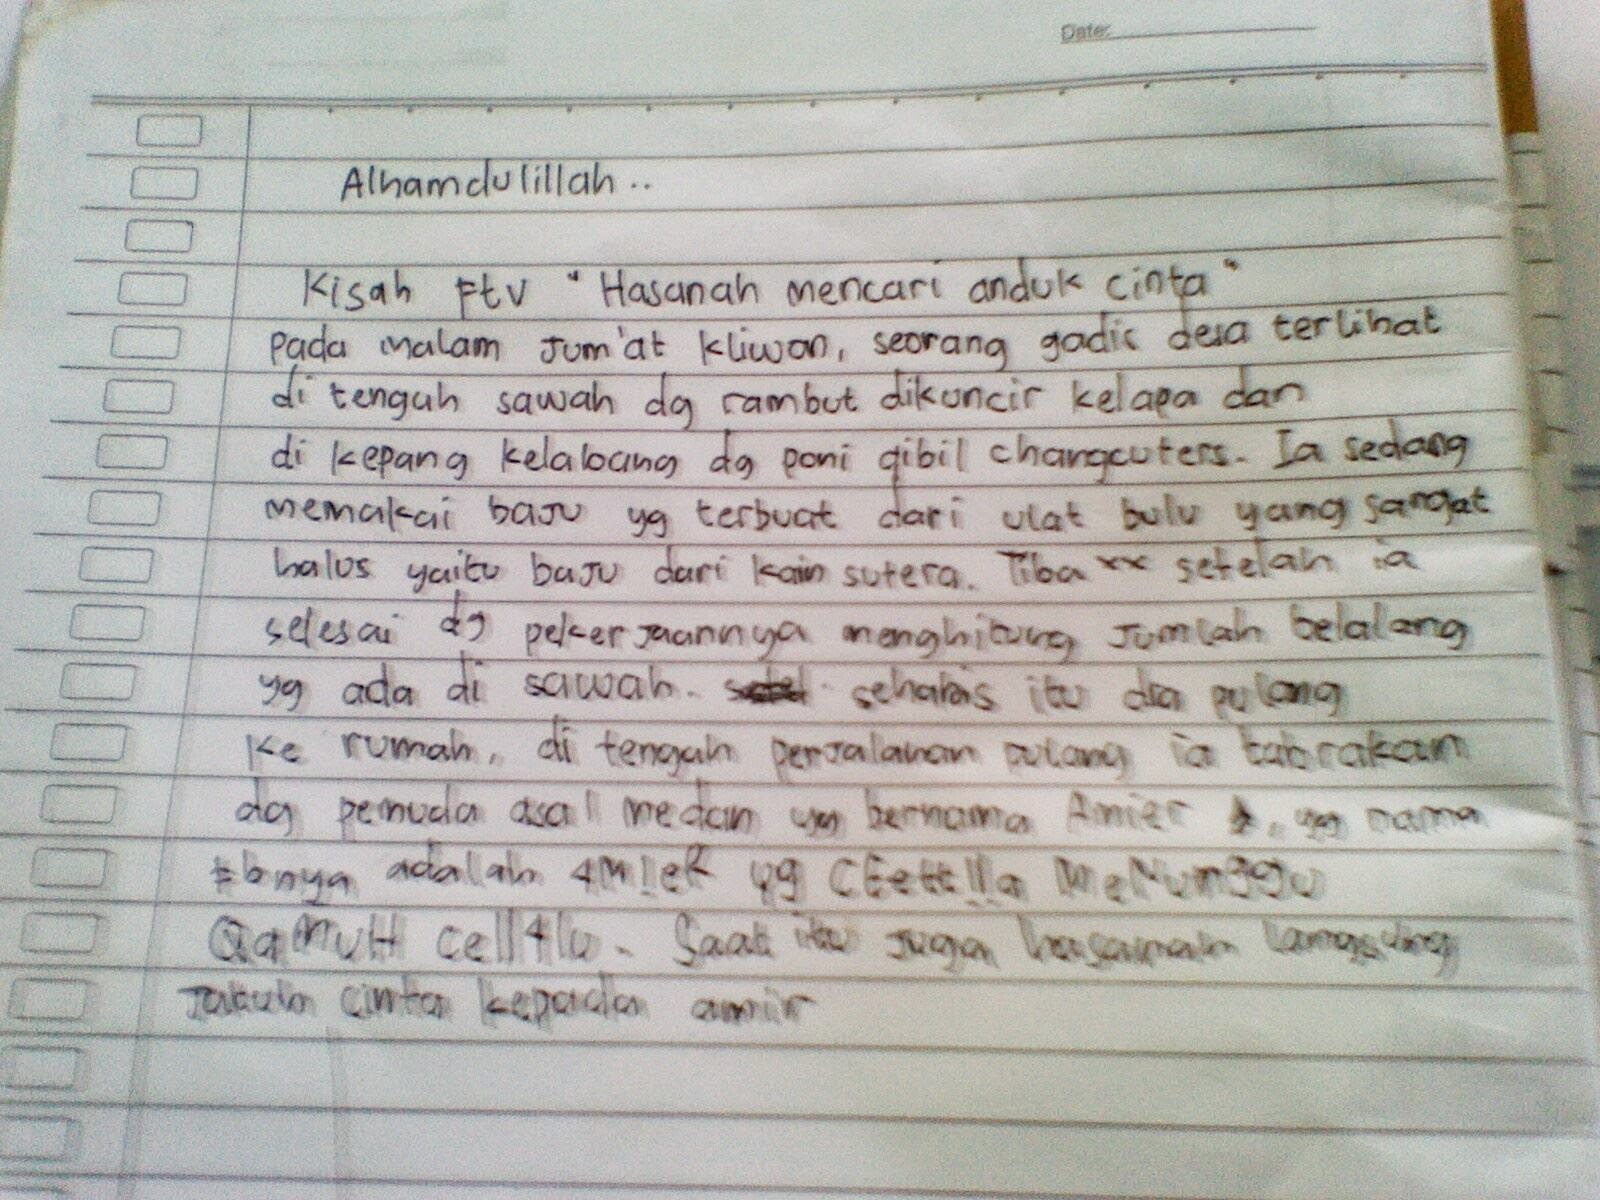 Date:
Alhamdulillah..
Kisah Ftv "Hasanah mencari anduk cinta"
pada malam Jum'at kliwon, seorang gadis desa terlihat
di tengah sawah dg rambut dikuncir kelapa dan
di kepang kelabang dg poni qibil changcuters. Ia sedang
memakai baju yg terbuat dari ulat bulu yang sangat
halus yaitu baju dari kain sutera. Tiba xx setelah ia
selesai dg pekerjaannya menghitung jumlah belalang
yg ada di sawah. sehabis itu dia pulang
ke rumah, di tengah perjalanan pulang ia tabrakan
dg pemuda asal medan yg bernama Amier, yg nama
fbnya adalah 4M!eR yg CEetE!!a MeNun99u
QaMuH Cell4lu. Saat itu juga hasanah langsung
Jatuh cinta kepada amir